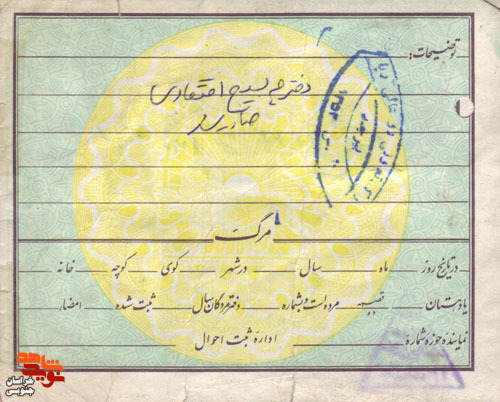 توضیحات:
دفترچه بسیج اقتصادی
صادر شد
مرگ
در تاریخ روز ماه سال در شهر کوی کوچه خانه
یا دهستان قصبه مرده است و بشماره دفتر مردگان سال ثبت شده امضاء
نماینده حوزه شماره اداره ثبت احوال
نوید شاهد
خراسان
جنوبی